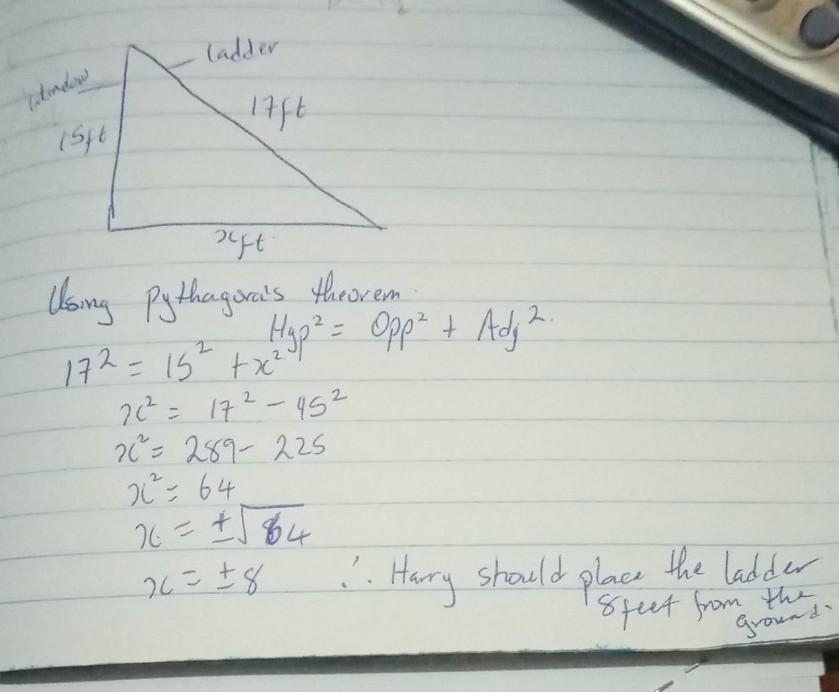 ladder
window
17ft
15ft
xft
Using Pythagora's theorem
Hyp² = Opp² + Adj².
17² = 15² + x²
x² = 17² - 45²
x² = 289 - 225
x² = 64
x = ±√64
x = ±8 ∴ Harry should place the ladder
8feet from the
ground.